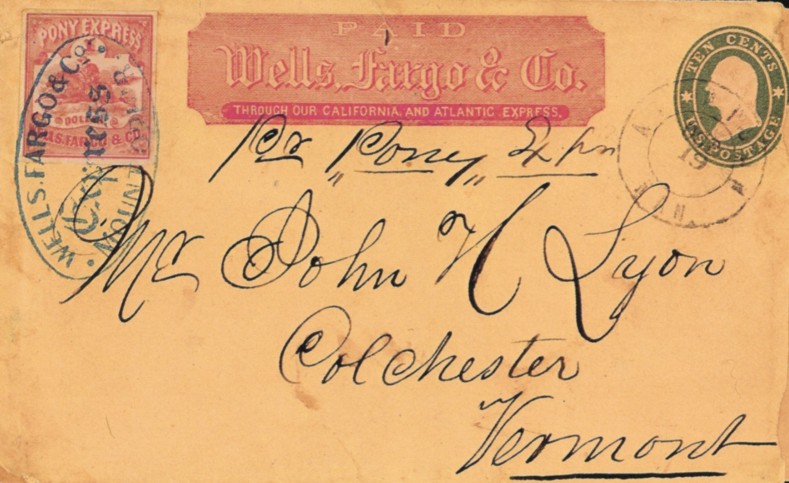 PONY EXPRESS
DOLLAR
WELLS.FARGO & CO
WELLS.FARGO & Co.
Express
PAID
Wells, Fargo & Co.
THROUGH OUR CALIFORNIA AND ATLANTIC EXPRESS.
TEN CENTS
U.S. POSTAGE
19
Pr "Pony" Exprs
Mr John H Lyon
Colchester
Vermont